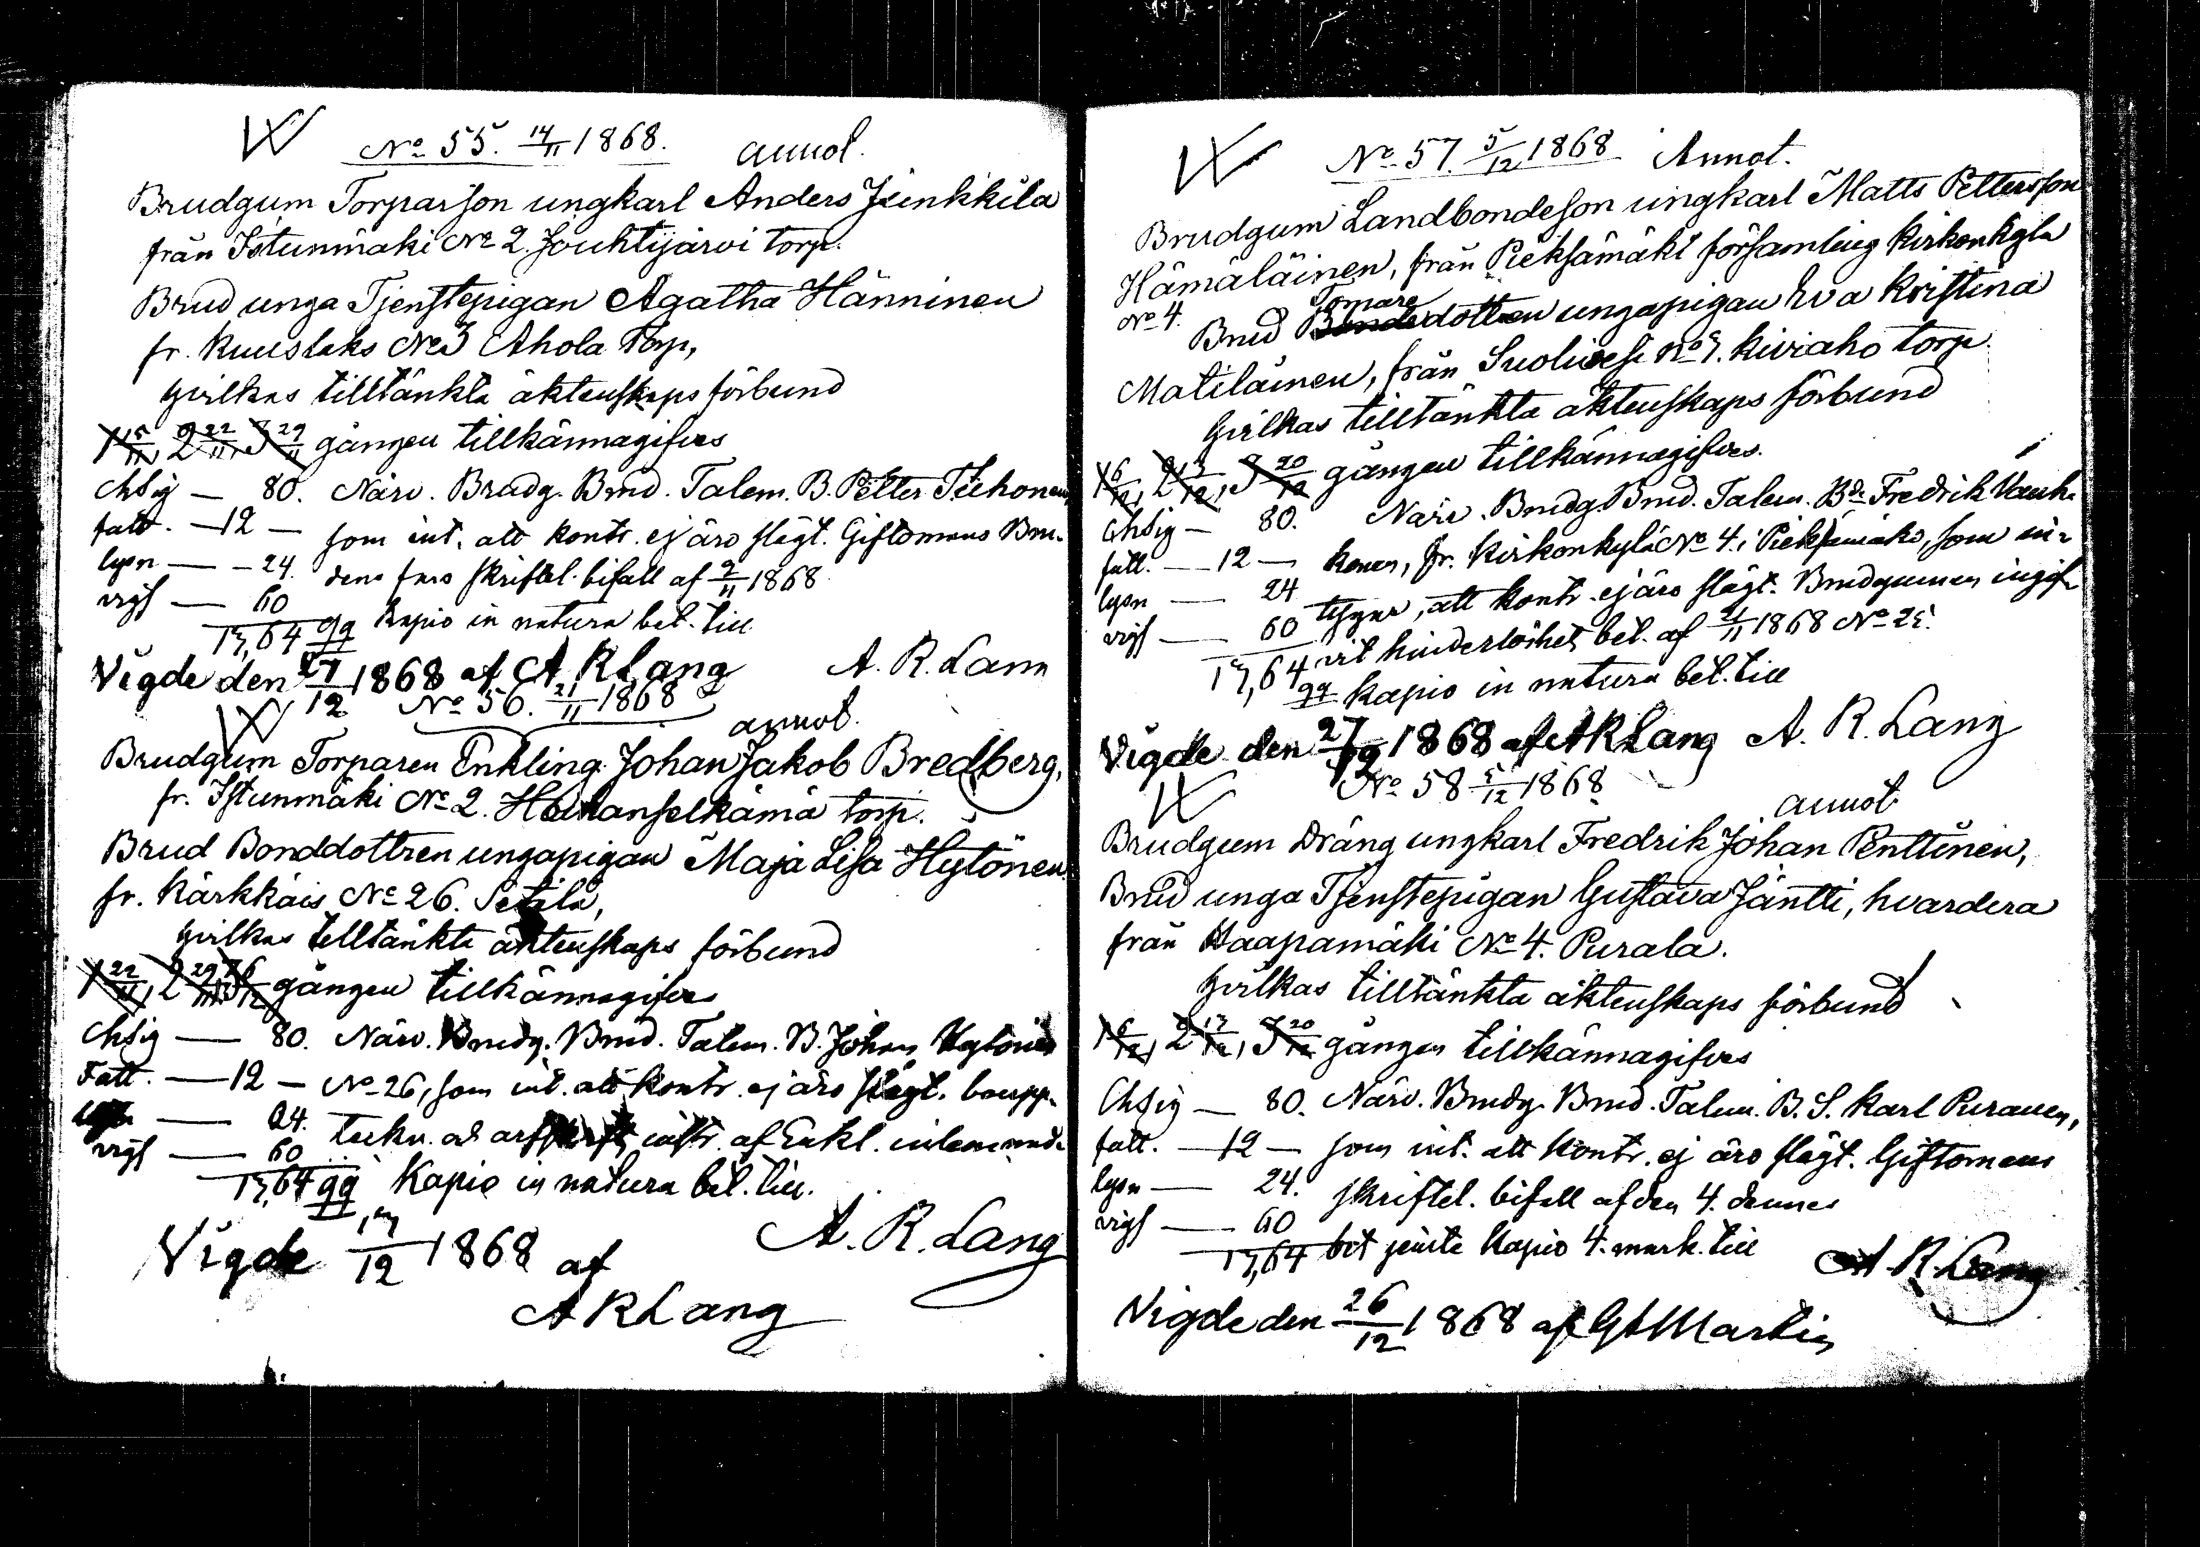 No 55. 14/11 1868. annot.
Brudgum Torparson ungkarl Anders
från Istunmäki No 2. Jouhtijärvi torp.
Brud unga Tjenstepigan Agatha Hänninen
fr. Kuuslaks No 3 Ahola Torp,
hvilkas tilltänkta äktenskaps förbund
1 15/11, 2 22/11, 3 29/11 gången tillkännagifves
Chsig — 80. Närv. Brudg. Brud. Talem. B. Petter Tiihonen,
fatt. — 12 — som int. att kontr. ej äro slägt. Giftomans Bru-
lysn — 24. dens fars skriftel. bifall af 9/11 1868
vigs — 60 Kapio in natura bet. till
1,64 gg
Vigde den 27/12 1868 af A R Lang A. R. Lang
No 56. 21/11 1868
annot.
Brudgum Torparen Enkling Johan Jakob Bredberg,
fr. Istunmäki No 2. torp.
Brud Bonddottren ungapigan Maja Lisa Hytönen
fr. Kärkkäis No 26. Setälä,
hvilkas tilltänkta äktenskaps förbund
1 22/11, 2 29/11, 3 6/12 gången tillkännagifves
Chsig — 80. Närv. Brudg. Brud. Talem. B. Johan Hytönen
Fatt. — 12 — No 26, som int. att kontr. ej äro slägt. boupp-
lysn — 24. tekn. af Enkl. inlemnad.
vigs — 60
1,64 gg Kapio in natura bet. till.
A. R. Lang
Vigde 17/12 1868 af
A R Lang
No 57. 5/12 1868 Annot.
Brudgum Landbondeson ungkarl Matts Pettersson
Hämäläinen, från Pieksämäki församling Kirkonkylä
No 4. Torpare
Brud Bondedottren ungapigan Eva Kristina
Matilainen, från Suolivesi No 5. Kiviaho torp.
hvilkas tilltänkta äktenskaps förbund
1 6/12, 2 13/12, 3 20/12 gången tillkännagifves.
Chsig — 80. Närv. Brudg. Brud. Talem. Bde Fredrik Vauh-
fatt. — 12 — konen, fr. Kirkonkylä No 4. i Pieksämäki, som in-
lysn — 24 tygar, att kontr. ej äro slägt. Brudgummen ingif-
vigs — 60 vit hinderlöshets bet. af 21/11 1868 No 25.
1,64
gg Kapio in natura bet. till
Vigde den 27/12 1868 af A R Lang A. R. Lang
No 58 5/12 1868
annot.
Brudgum Dräng ungkarl Fredrik Johan Penttinen,
Brud unga Tjenstepigan Gustava Jäntti, hvardera
från Haapamäki No 4. Purala.
hvilkas tilltänkta äktenskaps förbund
1 6/12, 2 13/12, 3 20/12 gången tillkännagifves
Chsig — 80. Närv. Brudg. Brud. Talem. B. S. Karl Puranen,
fatt. — 12 — som int. att kontr. ej äro slägt. Giftomans
lysn — 24. skriftel. bifall af den 4. dennes
vigs — 60
1,64 bet Kapio 4. mark. till
A. R. Lang
Vigde den 26/12 1868 af Martin